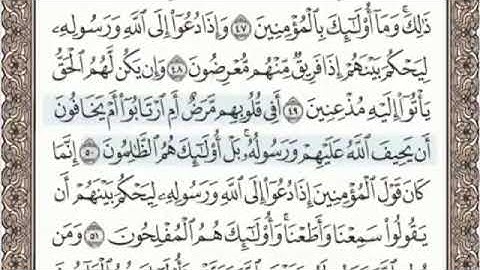 ذَٰلِكَۚ وَمَآ أُوْلَـٰٓئِكَ بِٱلْمُؤْمِنِينَ ٤٧ وَإِذَا دُعُوٓاْ إِلَى ٱللَّهِ وَرَسُولِهِۦ
لِيَحْكُمَ بَيْنَهُمْ إِذَا فَرِيقٌ مِّنْهُم مُّعْرِضُونَ ٤٨ وَإِن يَكُن لَّهُمُ ٱلْحَقُّ
يَأْتُوٓاْ إِلَيْهِ مُذْعِنِينَ ٤٩ أَفِى قُلُوبِهِم مَّرَضٌ أَمِ ٱرْتَابُوٓاْ أَمْ يَخَافُونَ
أَن يَحِيفَ ٱللَّهُ عَلَيْهِمْ وَرَسُولُهُۥۚ بَلْ أُوْلَـٰٓئِكَ هُمُ ٱلظَّـٰلِمُونَ ٥٠ إِنَّمَا
كَانَ قَوْلَ ٱلْمُؤْمِنِينَ إِذَا دُعُوٓاْ إِلَى ٱللَّهِ وَرَسُولِهِۦ لِيَحْكُمَ بَيْنَهُمْ أَن
يَقُولُواْ سَمِعْنَا وَأَطَعْنَاۚ وَأُوْلَـٰٓئِكَ هُمُ ٱلْمُفْلِحُونَ ٥١ وَمَن